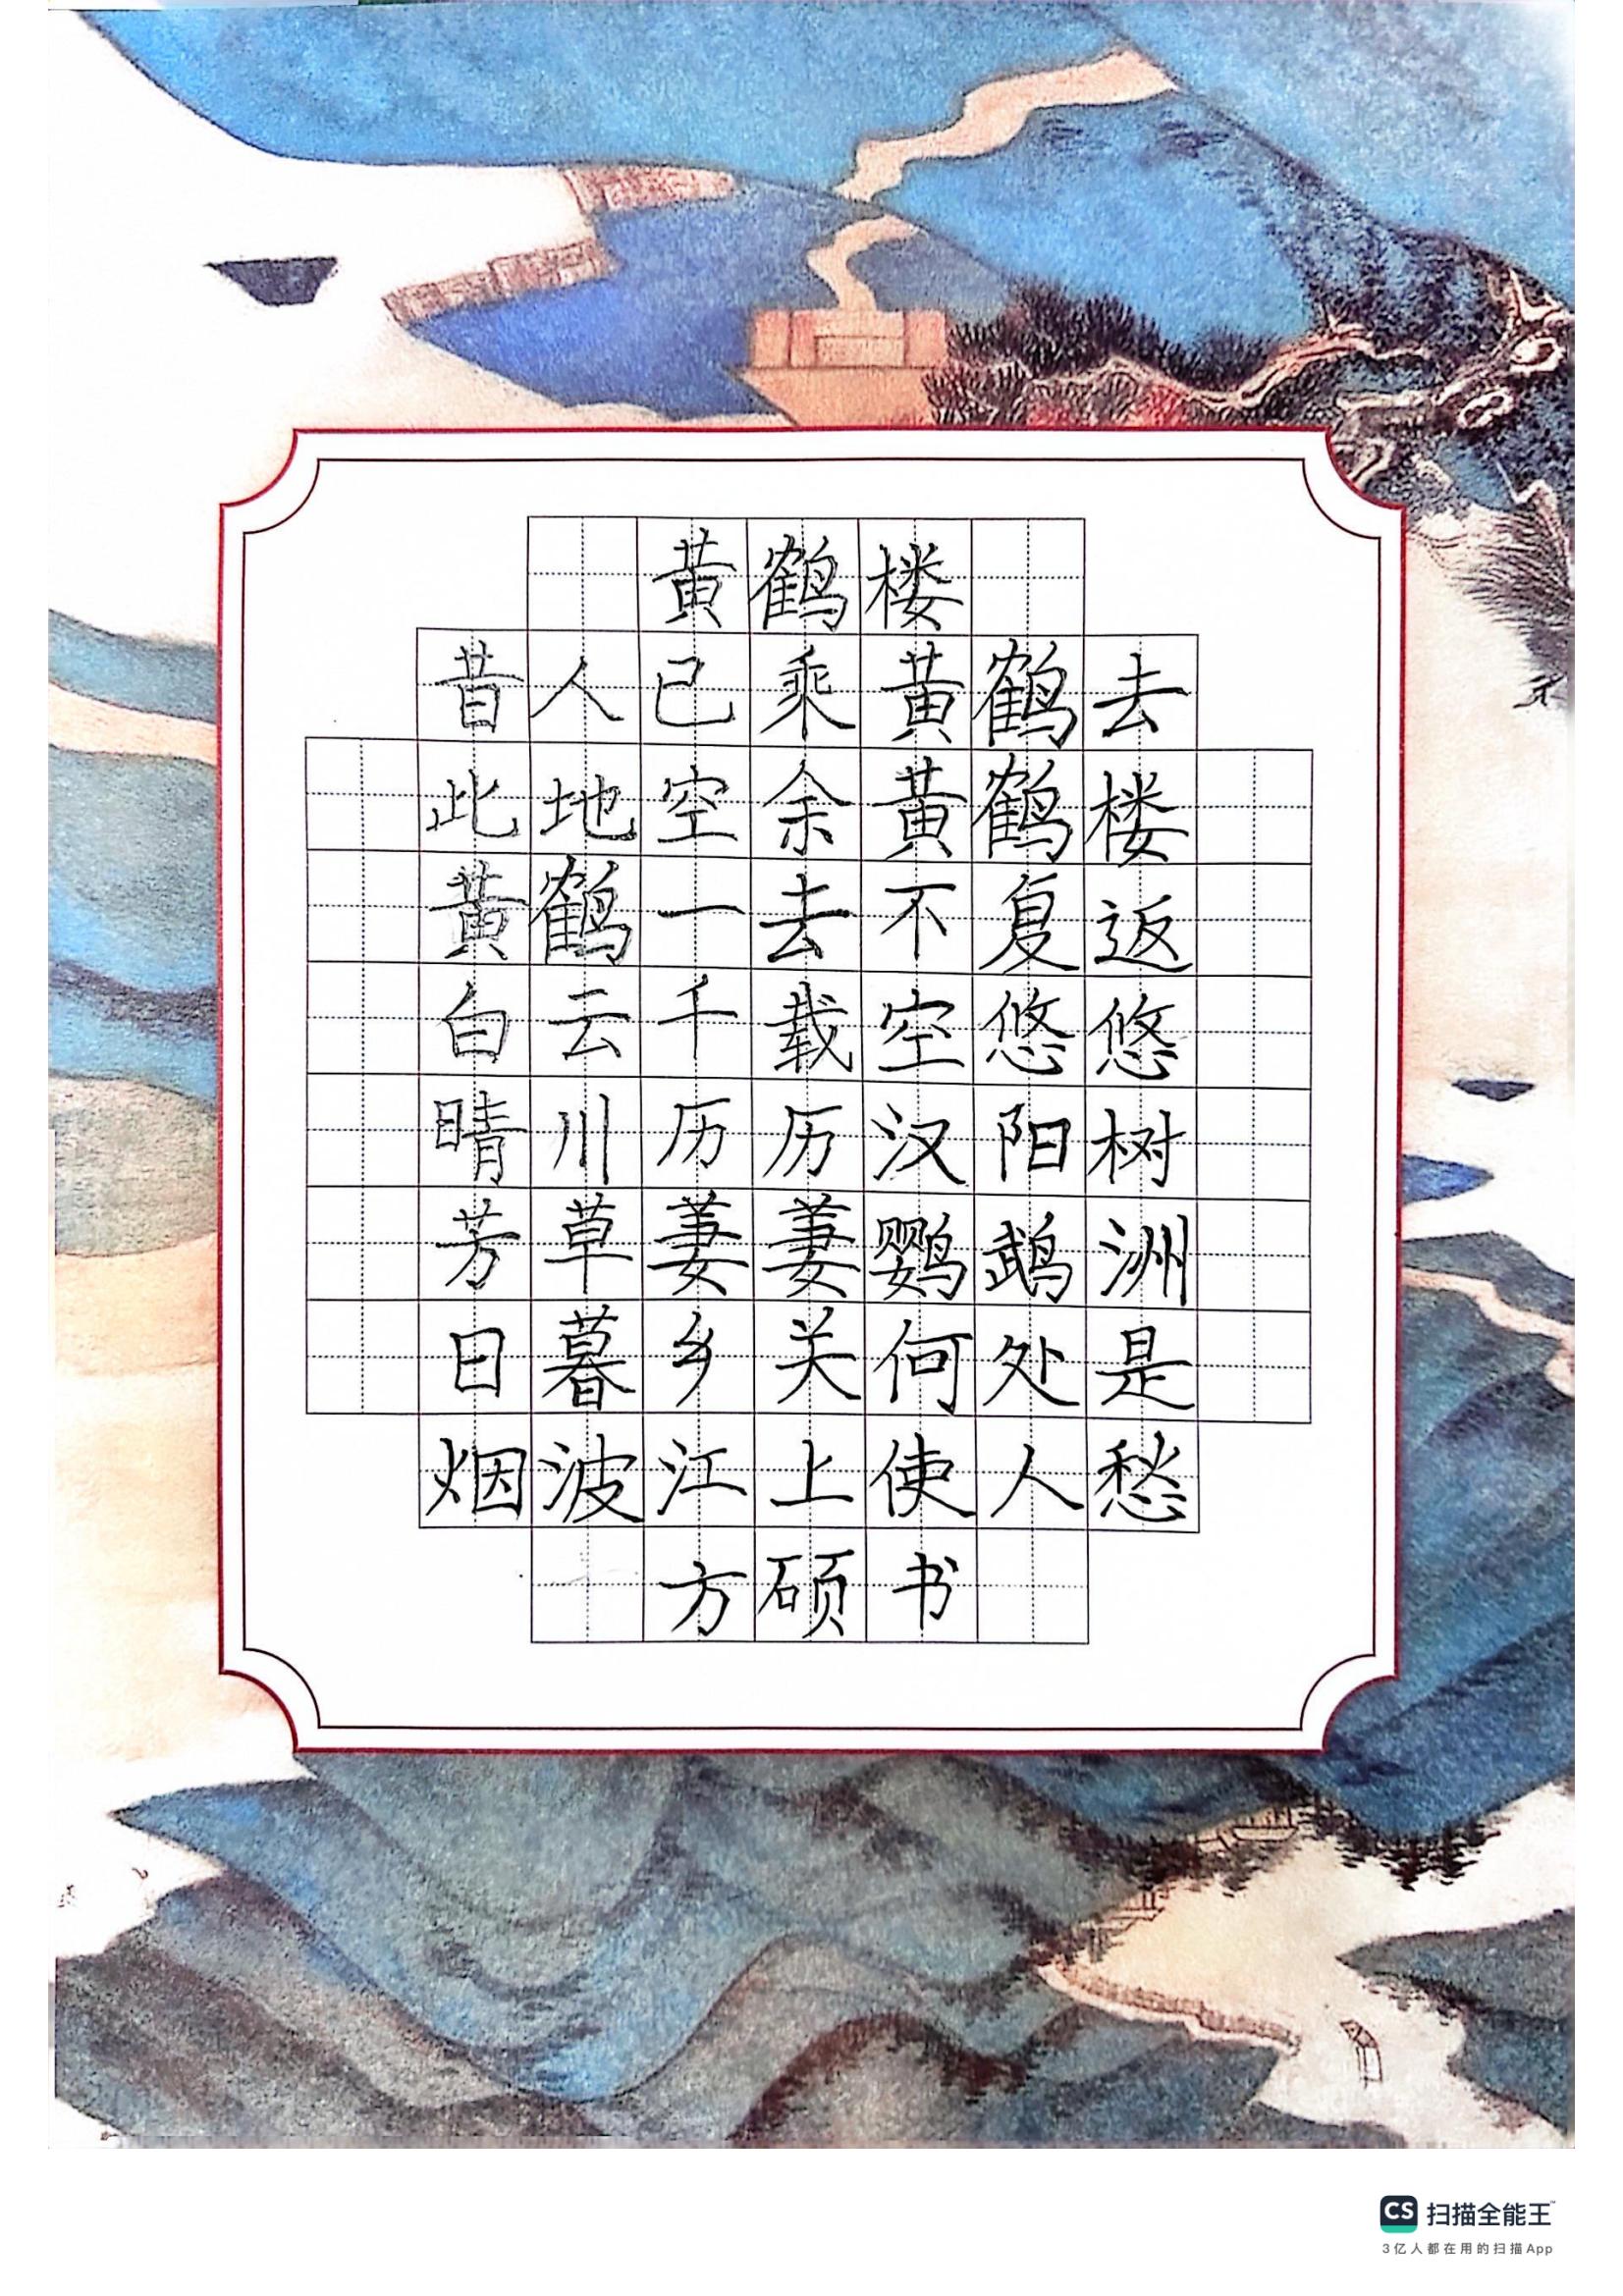 黄鹤楼
昔人已乘黄鹤去
此地空余黄鹤楼
黄鹤一去不复返
白云千载空悠悠
晴川历历汉阳树
芳草萋萋鹦鹉洲
日暮乡关何处是
烟波江上使人愁
方硕书
CS 扫描全能王™
3亿人都在用的扫描App